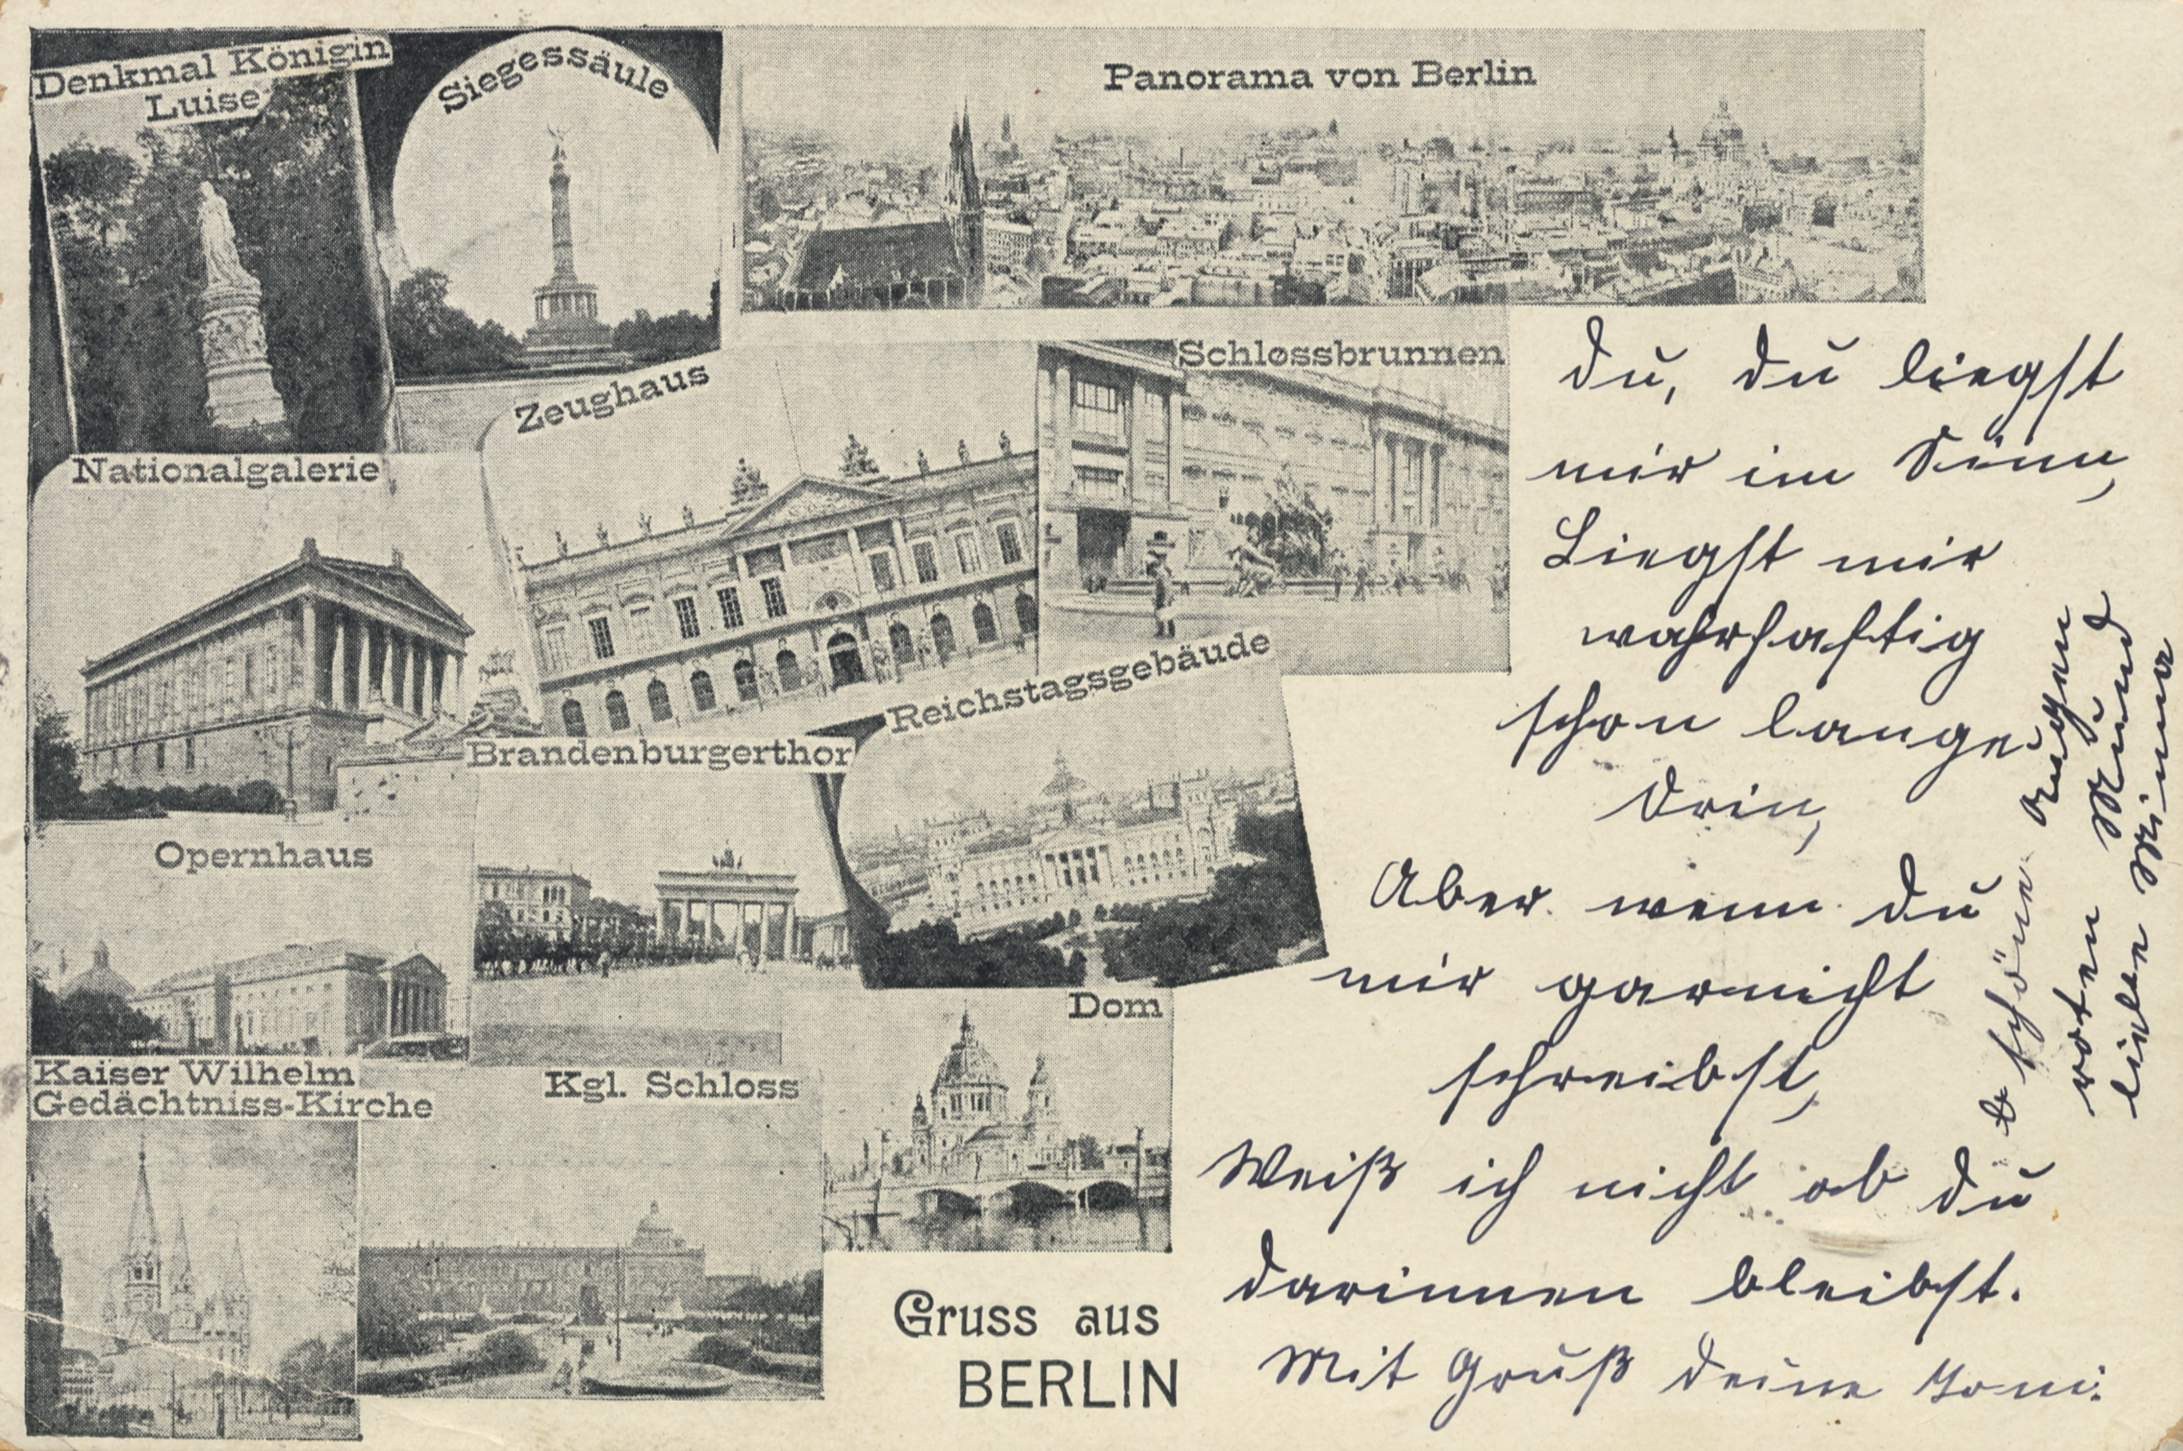 Denkmal Königin
Luise
Siegessäule
Panorama von Berlin
Zeughaus
Schlossbrunnen
Nationalgalerie
Reichstagsgebäude
Brandenburgerthor
Opernhaus
Dom
Kaiser Wilhelm
Gedächtniss-Kirche
Kgl. Schloss
Gruss aus
BERLIN
Du, du liegst
mir im Sinn,
Liegst mir
wahrhaftig
schon lange
drin,
Aber wenn du
mir garnicht
schreibst,
Weiß ich nicht ob du
darinnen bleibst.
Mit Gruß deine
schöne Augen
roten Mund
liebe Minna